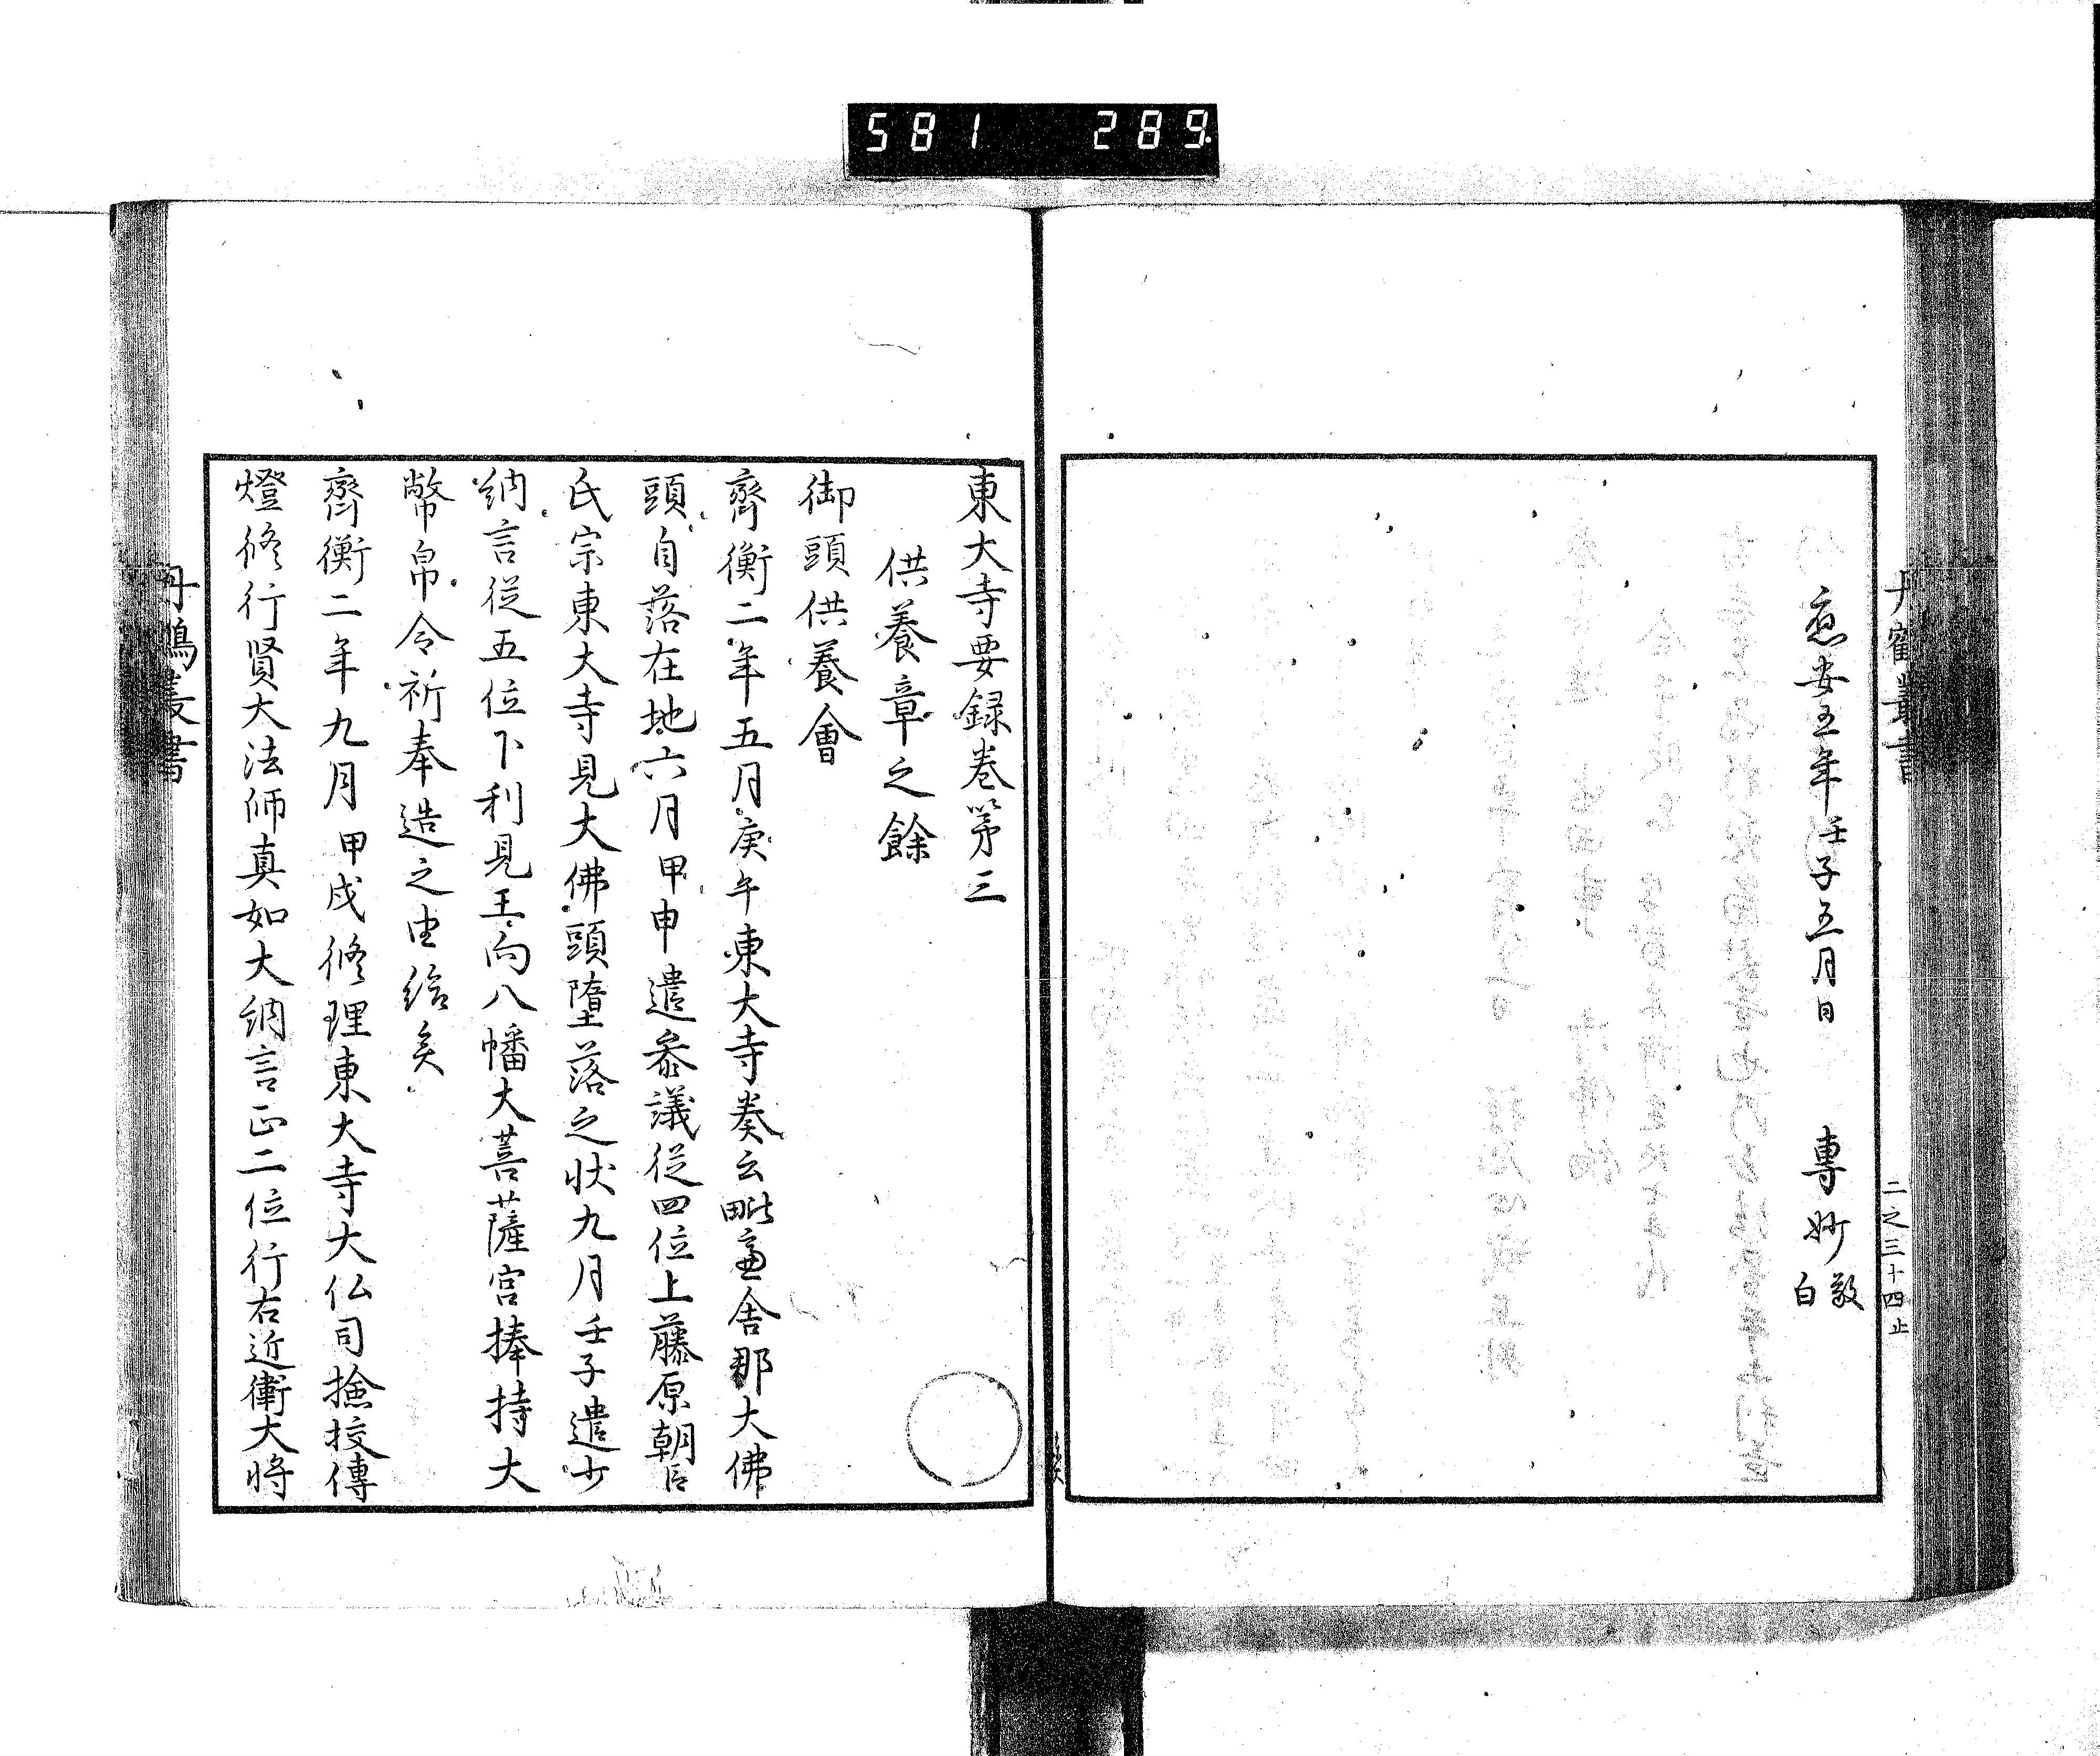 581 289
丹鶴叢書
二之三十四止
應安五年壬子五月日 專妙敬白
東大寺要録巻第三
供養章之餘
御頭供養會
齊衡二年五月庚午東大寺奏云毗盧舎那大佛
頭自落在地六月甲申遣叅議従四位上藤原朝臣
氏宗東大寺見大佛頭墮落之状九月壬子遣少
納言従五位下利見王向八幡大菩薩宮捧持大
幣帛令祈奉造之由給矣
齊衡二年九月甲戌修理東大寺大仏司撿挍傳
燈修行賢大法師真如大納言正二位行右近衛大将
丹鶴叢書